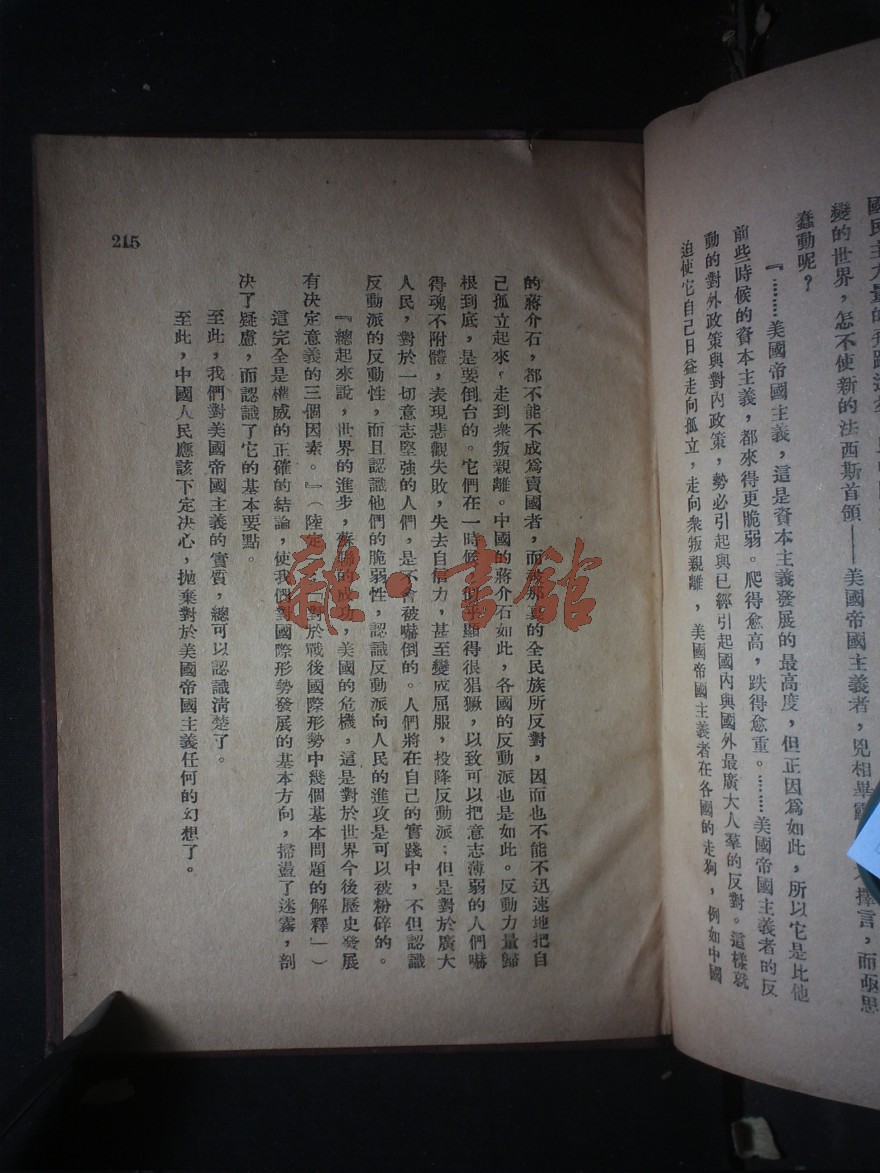 變的世界，怎不使新的法西斯首領——美國帝國主義者，兇相畢露 擇言，而亟思
蠢動呢？
『……美國帝國主義，這是資本主義發展的最高度，但正因爲如此，所以它是比他
前些時候的資本主義，都來得更脆弱。爬得愈高，跌得愈重。……美國帝國主義者的反
動的對外政策與對內政策，勢必引起與已經引起國內與國外最廣大人羣的反對。這樣就
迫使它自己日益走向孤立，走向衆叛親離，美國帝國主義者在各國的走狗，例如中國
的蔣介石，都不能不成爲賣國者，而被那裏的全民族所反對，因而也不能不迅速地把自
己孤立起來，走到衆叛親離。中國的蔣介石如此，各國的反動派也是如此。反動力量歸
根到底，是要倒台的。它們在一時候 似乎顯得很猖獗，以致可以把意志薄弱的人們嚇
得魂不附體，表現悲觀失敗，失去自信力，甚至變成屈服，投降反動派；但是對於廣大
人民，對於一切意志堅強的人們，是不會被嚇倒的。人們將在自己的實踐中，不但認識
反動派的反動性，而且認識他們的脆弱性，認識反動派向人民的進攻是可以被粉碎的。
『總起來說，世界的進步，蘇聯的成功，美國的危機，這是對於世界今後歷史發展
有決定意義的三個因素。』（陸定 對於戰後國際形勢中幾個基本問題的解釋」）
這完全是權威的正確的結論，使我們對國際形勢發展的基本方向，掃盪了迷霧，剖
決了疑慮，而認識了它的基本要點。
至此，我們對美國帝國主義的實質，總可以認識清楚了。
至此，中國人民應該下定決心，拋棄對於美國帝國主義任何的幻想了。
215
雜·書館